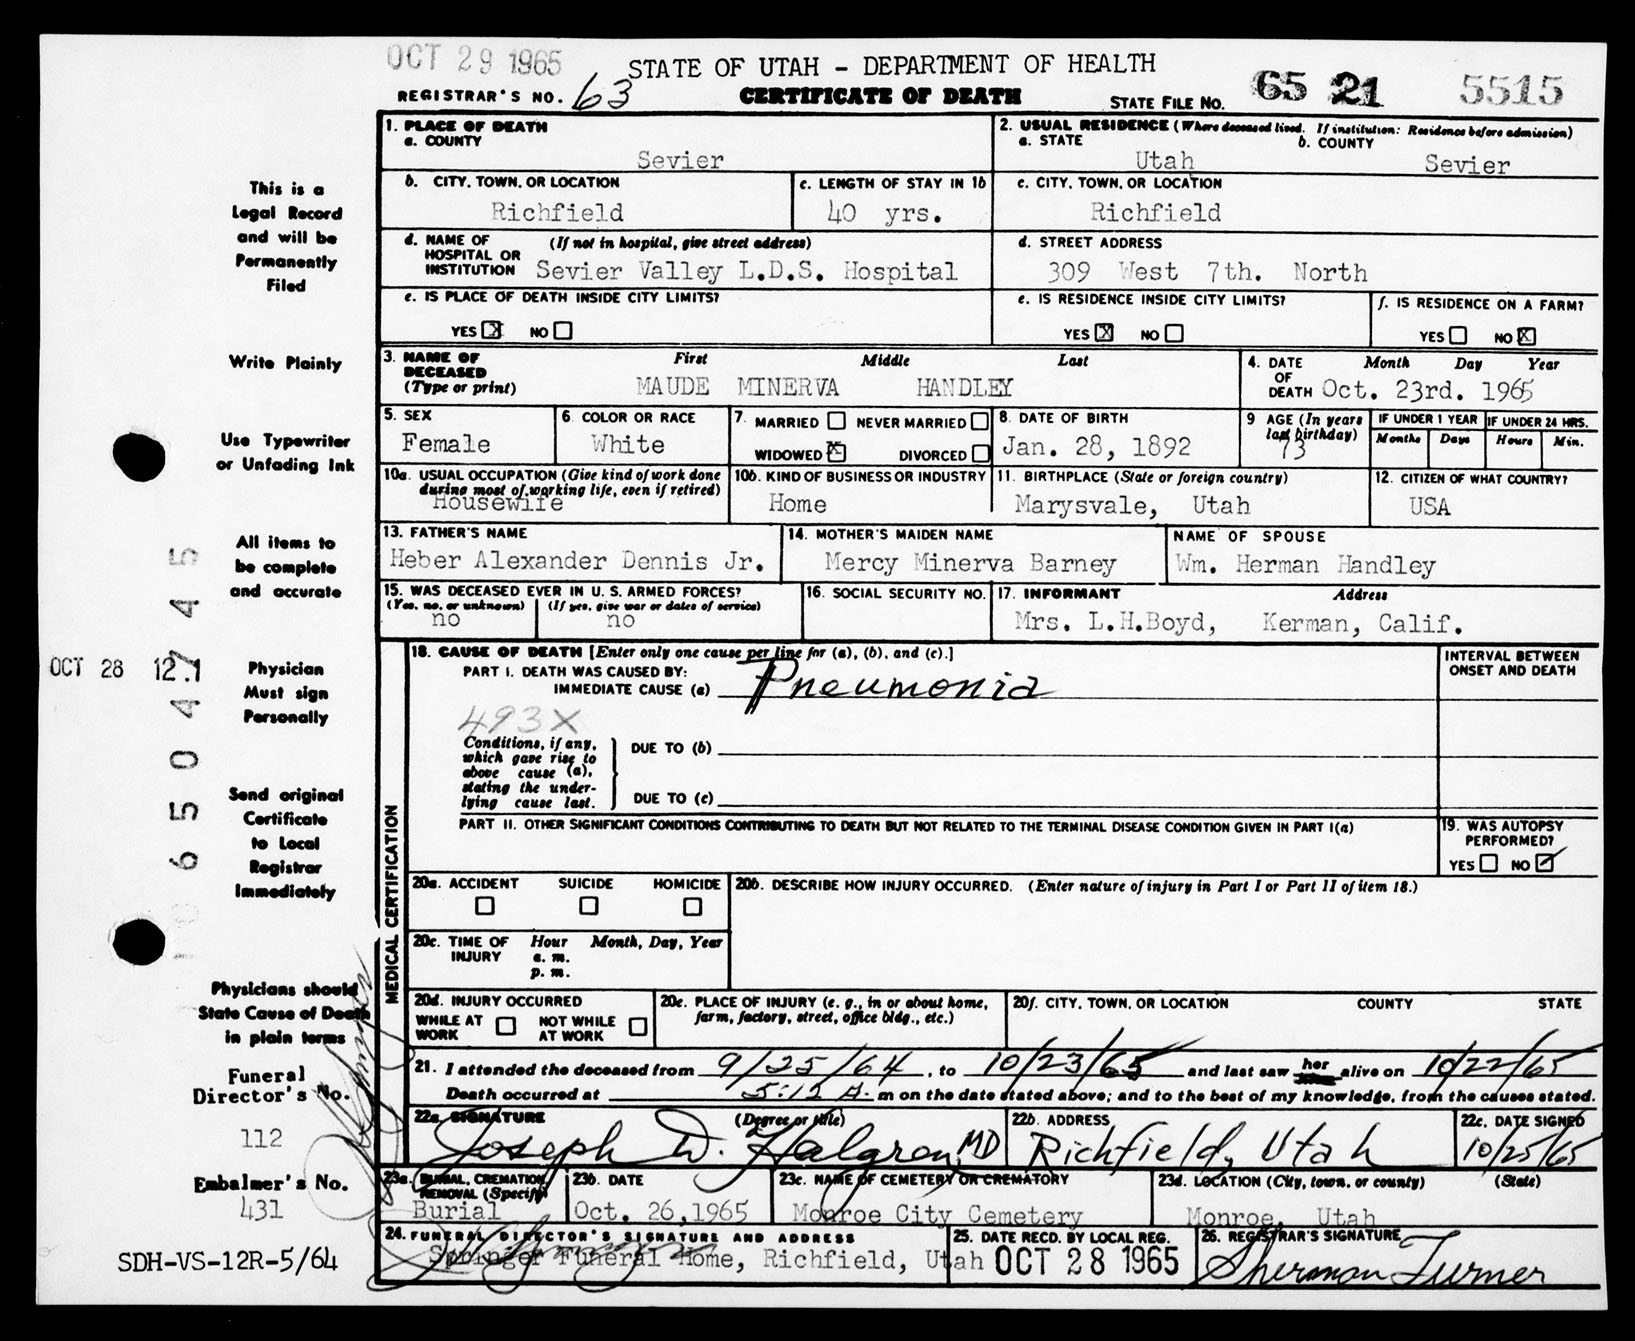 OCT 29 1965
STATE OF UTAH - DEPARTMENT OF HEALTH
REGISTRAR'S NO. 63
CERTIFICATE OF DEATH
STATE FILE NO. 65 21 5515
This is a
Legal Record
and will be
Permanently
Filed
Write Plainly
Use Typewriter
or Unfading Ink
All items to
be complete
and accurate
OCT 28 12.1
Physician
Must sign
Personally
65047745
Send original
Certificate
to Local
Registrar
Immediately
Physicians should
State Cause of Death
in plain terms
Funeral
Director's No.
112
Embalmer's No.
431
SDH-VS-12R-5/64
1. PLACE OF DEATH
a. COUNTY
Sevier
2. USUAL RESIDENCE (Where deceased lived. If institution: Residence before admission)
a. STATE
Utah
b. COUNTY
Sevier
b. CITY, TOWN, OR LOCATION
Richfield
c. LENGTH OF STAY IN 1b
40 yrs.
c. CITY, TOWN, OR LOCATION
Richfield
d. NAME OF HOSPITAL OR INSTITUTION
(If not in hospital, give street address)
Sevier Valley L.D.S. Hospital
d. STREET ADDRESS
309 West 7th. North
e. IS PLACE OF DEATH INSIDE CITY LIMITS?
YES X NO
e. IS RESIDENCE INSIDE CITY LIMITS?
YES X NO
f. IS RESIDENCE ON A FARM?
YES NO X
3. NAME OF DECEASED (Type or print)
First Middle Last
MAUDE MINERVA HANDLEY
4. DATE OF DEATH
Month Day Year
Oct. 23rd. 1965
5. SEX
Female
6. COLOR OR RACE
White
7. MARRIED NEVER MARRIED
WIDOWED X DIVORCED
8. DATE OF BIRTH
Jan. 28, 1892
9 AGE (In years last birthday)
73
IF UNDER 1 YEAR
Months Days
IF UNDER 24 HRS.
Hours Min.
10a. USUAL OCCUPATION (Give kind of work done during most of working life, even if retired)
Housewife
10b. KIND OF BUSINESS OR INDUSTRY
Home
11. BIRTHPLACE (State or foreign country)
Marysvale, Utah
12. CITIZEN OF WHAT COUNTRY?
USA
13. FATHER'S NAME
Heber Alexander Dennis Jr.
14. MOTHER'S MAIDEN NAME
Mercy Minerva Barney
NAME OF SPOUSE
Wm. Herman Handley
15. WAS DECEASED EVER IN U. S. ARMED FORCES?
(Yes, no, or unknown) (If yes, give war or dates of service)
no no
16. SOCIAL SECURITY NO.
17. INFORMANT Address
Mrs. L.H.Boyd, Kerman, Calif.
MEDICAL CERTIFICATION
18. CAUSE OF DEATH [Enter only one cause per line for (a), (b), and (c).]
INTERVAL BETWEEN ONSET AND DEATH
PART I. DEATH WAS CAUSED BY:
IMMEDIATE CAUSE (a) Pneumonia
493X
Conditions, if any, which gave rise to above cause (a), stating the underlying cause last.
DUE TO (b)
DUE TO (c)
PART II. OTHER SIGNIFICANT CONDITIONS CONTRIBUTING TO DEATH BUT NOT RELATED TO THE TERMINAL DISEASE CONDITION GIVEN IN PART I(a)
19. WAS AUTOPSY PERFORMED?
YES NO ✓
20a. ACCIDENT SUICIDE HOMICIDE
20b. DESCRIBE HOW INJURY OCCURRED. (Enter nature of injury in Part I or Part II of item 18.)
20c. TIME OF INJURY Hour Month, Day, Year
a. m.
p. m.
20d. INJURY OCCURRED
WHILE AT WORK NOT WHILE AT WORK
20e. PLACE OF INJURY (e. g., in or about home, farm, factory, street, office bldg., etc.)
20f. CITY, TOWN, OR LOCATION COUNTY STATE
21. I attended the deceased from 9/25/64, to 10/23/65 and last saw her alive on 10/22/65
Death occurred at 5:12 A. m on the date stated above; and to the best of my knowledge, from the causes stated.
22a. SIGNATURE (Degree or title)
Joseph D. Halgren, MD
22b. ADDRESS
Richfield, Utah
22c. DATE SIGNED
10/25/65
23a. BURIAL, CREMATION, REMOVAL (Specify)
Burial
23b. DATE
Oct. 26,1965
23c. NAME OF CEMETERY OR CREMATORY
Monroe City Cemetery
23d. LOCATION (City, town, or county) (State)
Monroe, Utah
24. FUNERAL DIRECTOR'S SIGNATURE AND ADDRESS
Springer Funeral Home, Richfield, Utah
25. DATE RECD. BY LOCAL REG.
OCT 28 1965
26. REGISTRAR'S SIGNATURE
Sherman Turner